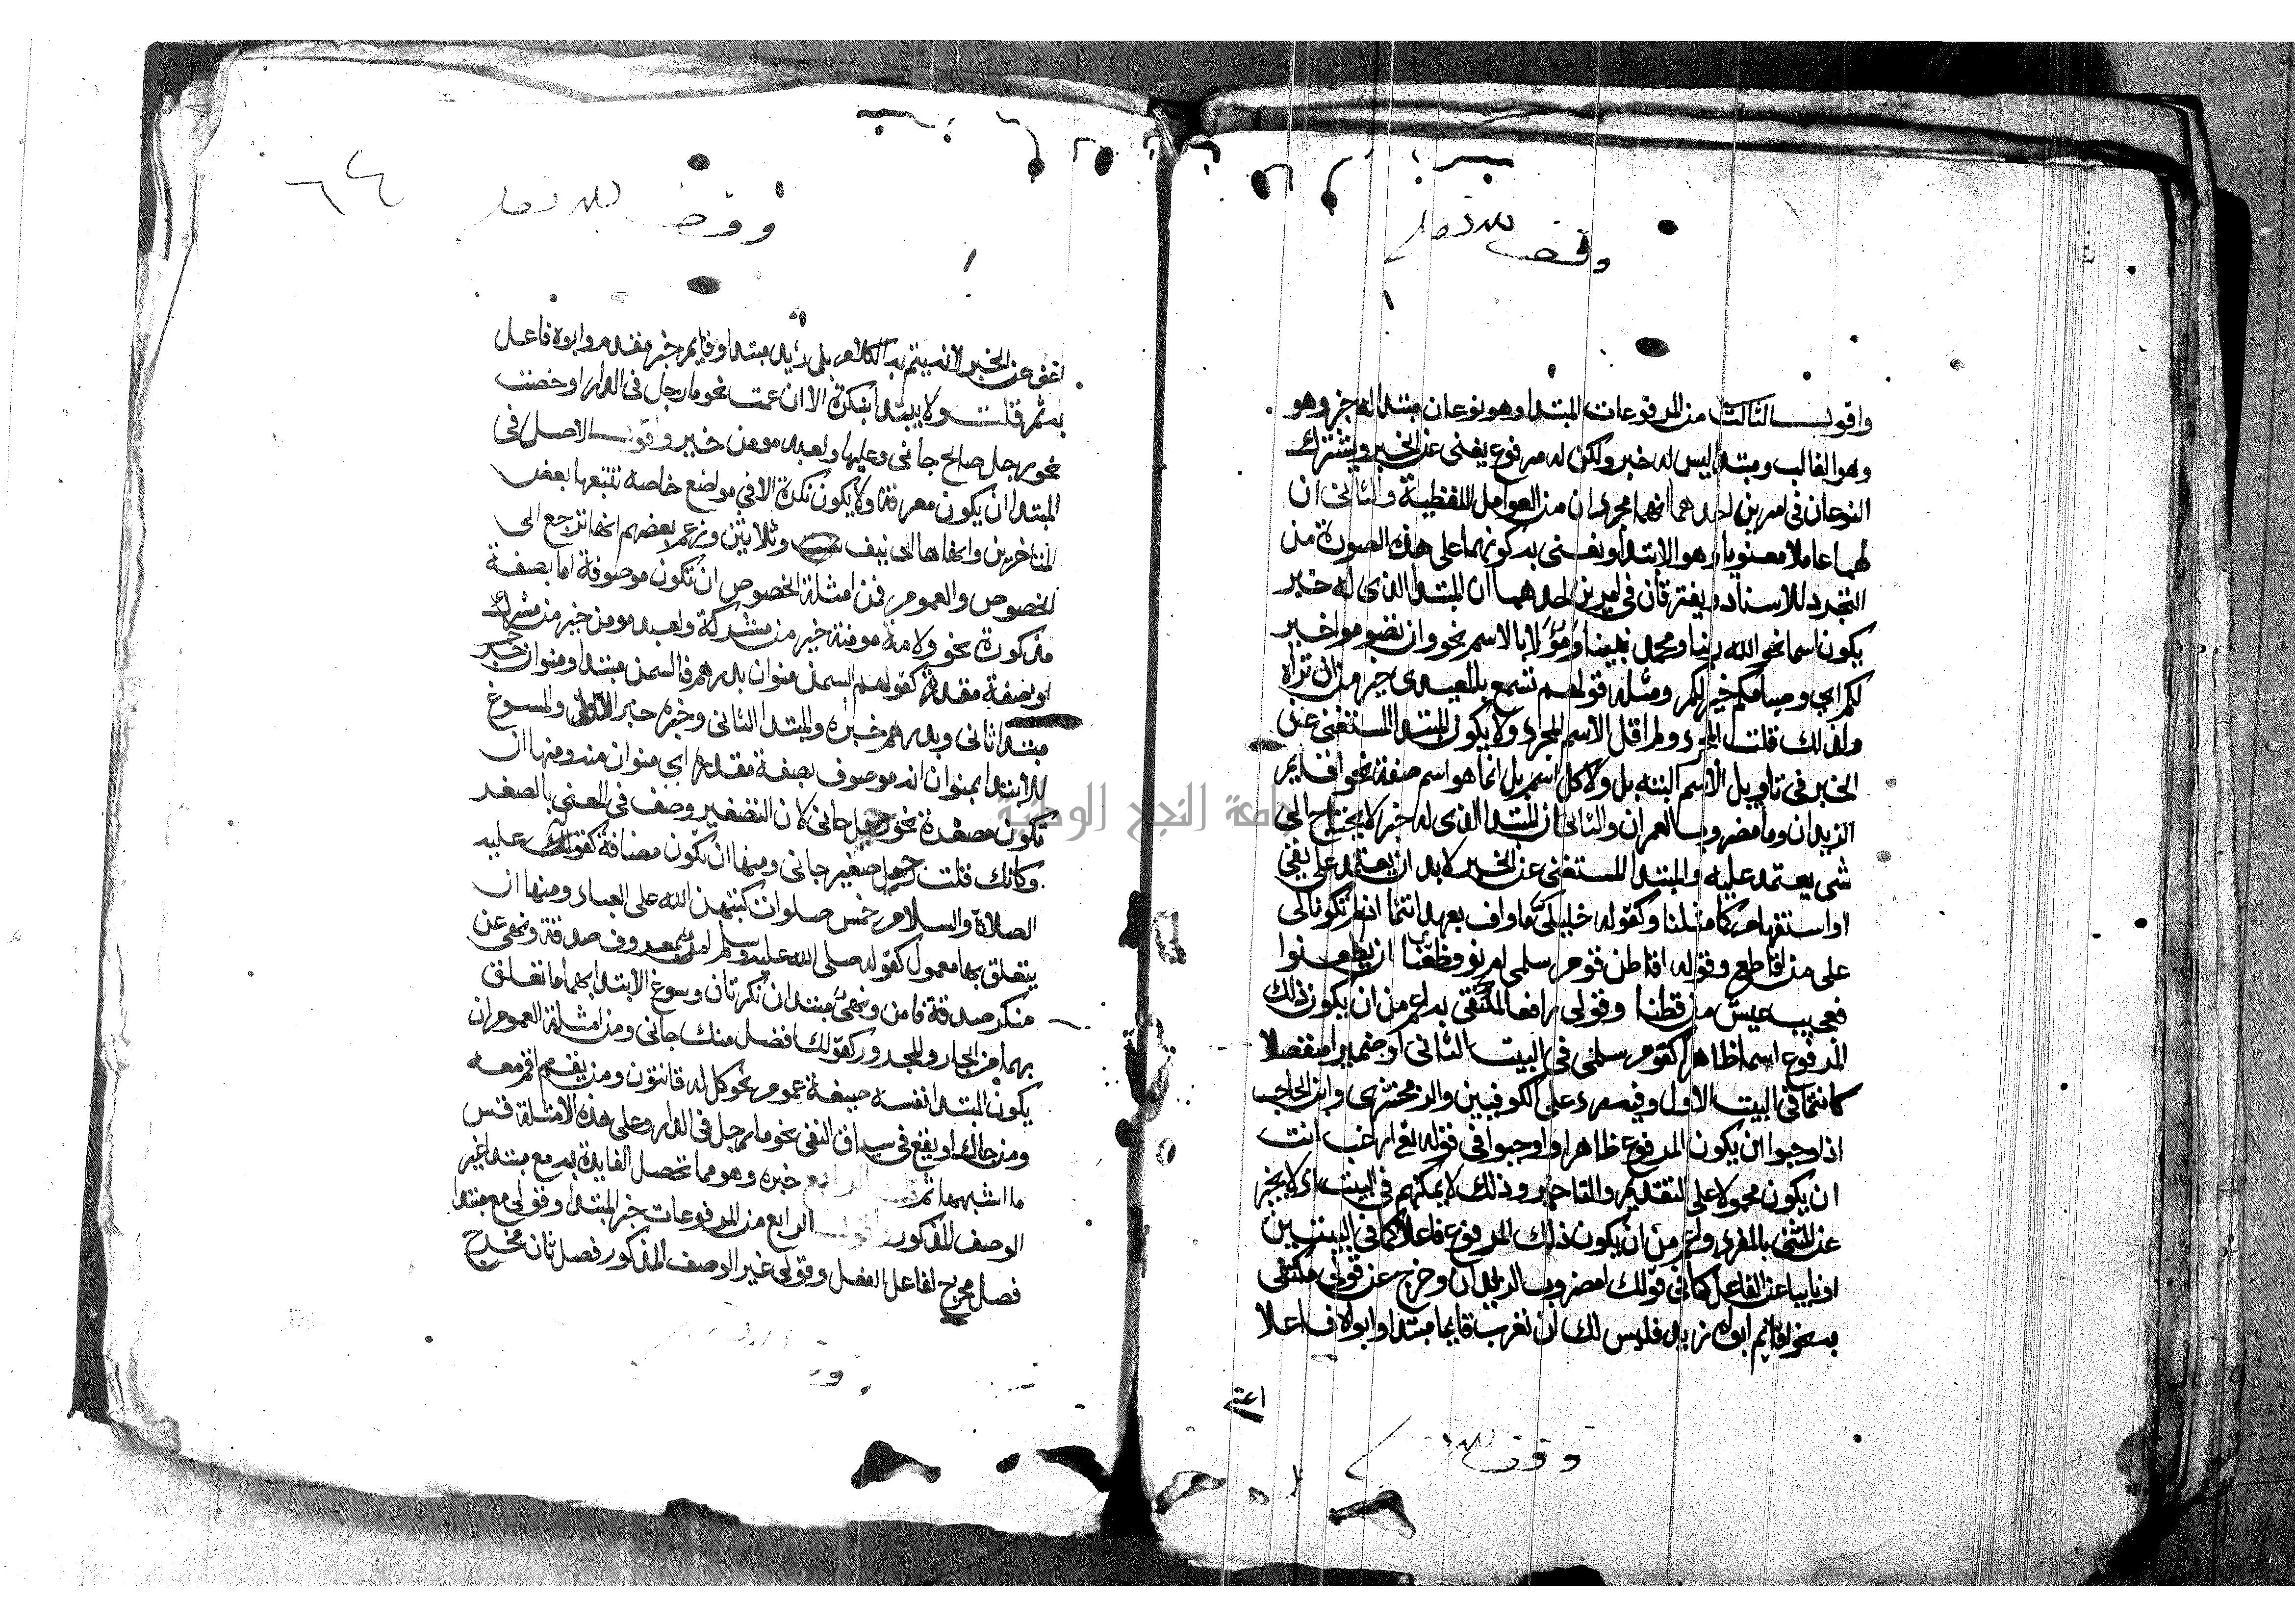 وقف لله تعالى
واقول الثالث من المرفوعات المبتدا وهو نوعان مبتدا له خبر وهو
وهو الغالب ومبتدا ليس له خبر ولكن له مرفوع يغني عن الخبر ويشترك
النوعان في امرين احدهما انهما مجردان من العوامل اللفظية والثاني ان
لهما عاملا معنويا وهو الابتدا ونعني به كونهما على هذه الصورة من
التجرد للاسناد ويفترقان في امرين احدهما ان المبتدا الذي له خبر
يكون اسما نحو الله ربنا ومحمد نبينا ومؤولا بالاسم نحو وان تصوموا خير
لكم اي وصيامكم خير لكم ومثله قولهم تسمع بالمعيدي خير من ان تراه
ولذلك قلت المجرد ولم اقل الاسم المجرد ولا يكون المبتدا المستغني عن
الخبر في تاويل الاسم البتة بل ولا كل اسم بل انما هو اسم صفة نحو اقايم
الزيدان وما مضروب العمران والثاني ان المبتدا الذي له خبر لا يحتاج الى
شي يعتمد عليه والمبتدا المستغني عن الخبر لا بد ان يعتمد على نفي
او استفهام كما مثلنا وكقوله خليلي ما واف بعهدي انتما اذا لم تكونا لي
على من اقاطع وقوله اقاطن قوم سلمى ام نووا ظعنا ان يظعنوا
فعجيب عيش من قطنا وقولي رافعا لمكتفى به اعم من ان يكون ذلك
المرفوع اسما ظاهرا كقوم سلمى في البيت الثاني او ضميرا منفصلا
كانتما في البيت الاول وفيه رد على الكوفيين والزمخشري وابن الحاجب
اذ اوجبوا ان يكون المرفوع ظاهرا واوجبوا في قوله تع اراغب انت
ان يكون محمولا على التقديم والتاخير وذلك لا يمكنهم في البيت اذ لا يخبر
عن المثنى بالمفرد واعم من ان يكون ذلك المرفوع فاعلا كما في البيتين
او نايبا عن الفاعل كما في قولك امضروب الزيدان وخرج عن قولي مكتفى
به نحو اقايم ابواه زيد فليس لك ان تعرب قايما مبتدا وابواه فاعلا
اغنى
وقف لله تعالى
وقف لله تعالى
٦٤
اغنى عن الخبر لانه يتم به الكلام بل زيد مبتدا وقايم خبر مقدم وابوه فاعل
به ثم قلت ولا يبتدا بنكرة الا ان عمت نحو ما رجل في الدار او خصت
نحو رجل صالح جاني وعليها ولعبد مومن خير واقول الاصل في
المبتدا ان يكون معرفة ولا يكون نكرة الا في مواضع خاصة تتبعها بعض
المتاخرين وانهاها الى نيف وثلاثين وزعم بعضهم انها ترجع الى
الخصوص والعموم فمن امثلة الخصوص ان تكون موصوفة اما بصفة
مذكورة نحو ولامة مومنة خير من مشركة ولعبد مومن خير من مشرك
او بصفة مقدرة كقولهم السمن منوان بدرهم فالسمن مبتدا ومنوان خبر
مبتدا ثاني وبدرهم خبره والمبتدا الثاني وخبره خبر الاول والمسوغ
للابتدا بمنوان انه موصوف بصفة مقدرة اي منوان منه ومنها ان
تكون مصغرة نحو رجيل جاني لان التصغير وصف في المعنى بالصغر
وكانك قلت رجل صغير جاني ومنها ان يكون مضافة كقوله عليه
الصلاة والسلام خمس صلوات كتبهن الله على العباد ومنها ان
يتعلق بها معمول كقوله صلى الله عليه وسلم امر بمعروف صدقة ونهي عن
منكر صدقة فامر ونهي مبتدان نكرتان وسوغ الابتدا بهما ما تعلق
بهما من الجار والمجرور كقولك افضل منك جاني ومن امثلة العموم ان
يكون المبتدا نفسه صيغة عموم نحو كل له قانتون ومن يقم اقم معه
ومن جاك او يقع في سياق النفي نحو ما رجل في الدار وعلى هذه الامثلة قس
ما اشبهها ثم قلت الرابع خبره وهو مما تحصل الفايدة به مع مبتدا غير
الوصف المذكور واقول الرابع من المرفوعات خبر المبتدا وقولي مع مبتدا
فصل مخرج لفاعل الفعل وقولي غير الوصف المذكور فصل ثان مخرج
جامعة النجاح الوطنية